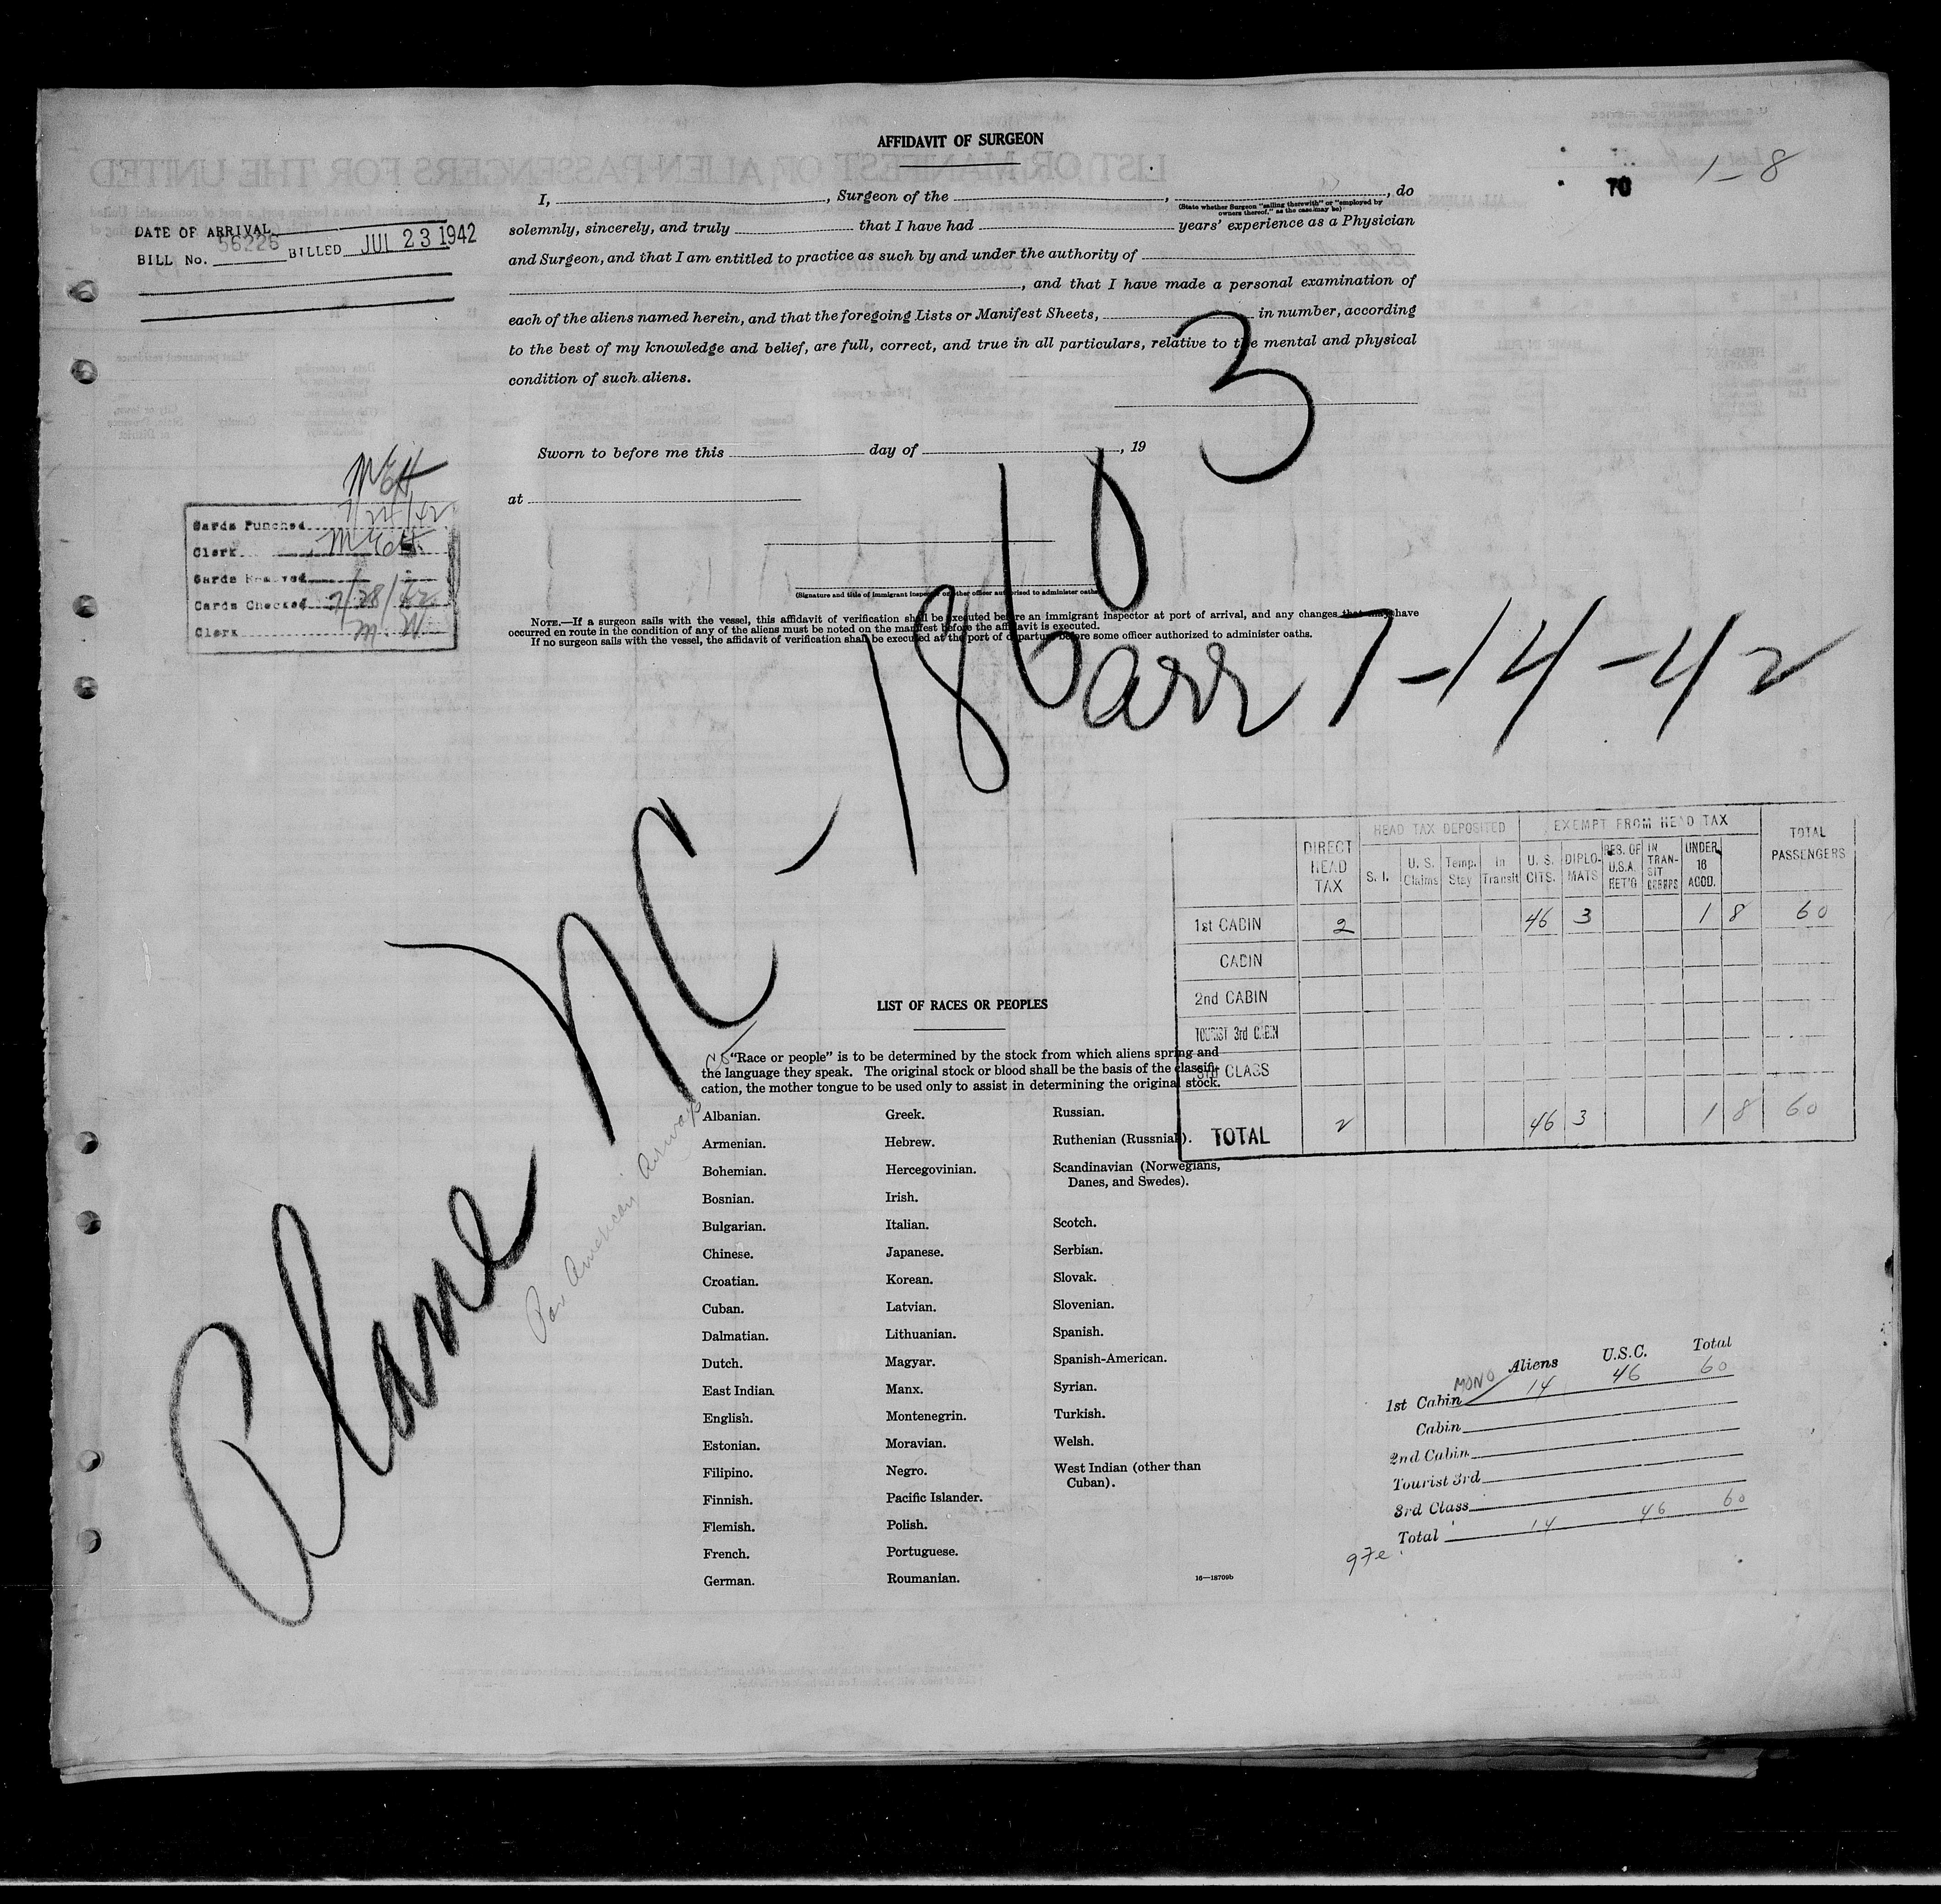 AFFIDAVIT OF SURGEON
1-8
70
I, , Surgeon of the , , do
(State whether Surgeon "sailing therewith" or "employed by
owners thereof," as the case may be)
solemnly, sincerely, and truly that I have had years' experience as a Physician
and Surgeon, and that I am entitled to practice as such by and under the authority of
, and that I have made a personal examination of
each of the aliens named herein, and that the foregoing Lists or Manifest Sheets, in number, according
to the best of my knowledge and belief, are full, correct, and true in all particulars, relative to the mental and physical
condition of such aliens.
Sworn to before me this day of , 19
at
(Signature and title of immigrant inspector or other officer authorized to administer oaths)
NOTE.—If a surgeon sails with the vessel, this affidavit of verification shall be executed before an immigrant inspector at port of arrival, and any changes that may have
occurred en route in the condition of any of the aliens must be noted on the manifest before the affidavit is executed.
If no surgeon sails with the vessel, the affidavit of verification shall be executed at the port of departure before some officer authorized to administer oaths.
DATE OF ARRIVAL
BILL No. 56226 BILLED JUL 23 1942
MEH
Cards Punched 7/24/42
Clerk MEH
Cards
Cards Checked 7/28/42
Clerk M. W.
Plane NC-18603
arr 7-14-42
Pan American Airways
HEAD TAX DEPOSITED EXEMPT FROM HEAD TAX
DIRECT HEAD TAX S. I. U. S. Claims Temp. Stay In Transit U. S. CITS. DIPLO-MATS RES. OF U.S.A. RET'G IN TRAN-SIT UNDER 16 ACOD. TOTAL PASSENGERS
1st CABIN 2 46 3 1 8 60
CABIN
2nd CABIN
TOURIST 3rd CABIN
3rd CLASS
TOTAL 2 46 3 1 8 60
LIST OF RACES OR PEOPLES
"Race or people" is to be determined by the stock from which aliens spring and
the language they speak. The original stock or blood shall be the basis of the classifi-
cation, the mother tongue to be used only to assist in determining the original stock.
Albanian.
Armenian.
Bohemian.
Bosnian.
Bulgarian.
Chinese.
Croatian.
Cuban.
Dalmatian.
Dutch.
East Indian
English.
Estonian.
Filipino.
Finnish.
Flemish.
French.
German.
Greek.
Hebrew.
Hercegovinian.
Irish.
Italian.
Japanese.
Korean.
Latvian.
Lithuanian.
Magyar.
Manx.
Montenegrin.
Moravian.
Negro.
Pacific Islander.
Polish.
Portuguese.
Roumanian.
Russian.
Ruthenian (Russniak).
Scandinavian (Norwegians,
Danes, and Swedes).
Scotch.
Serbian.
Slovak.
Slovenian.
Spanish.
Spanish-American.
Syrian.
Turkish.
Welsh.
West Indian (other than
Cuban).
16—18709b
Aliens U.S.C. Total
1st Cabin MONO 14 46 60
Cabin
2nd Cabin
Tourist 3rd
3rd Class
Total 14 46 60